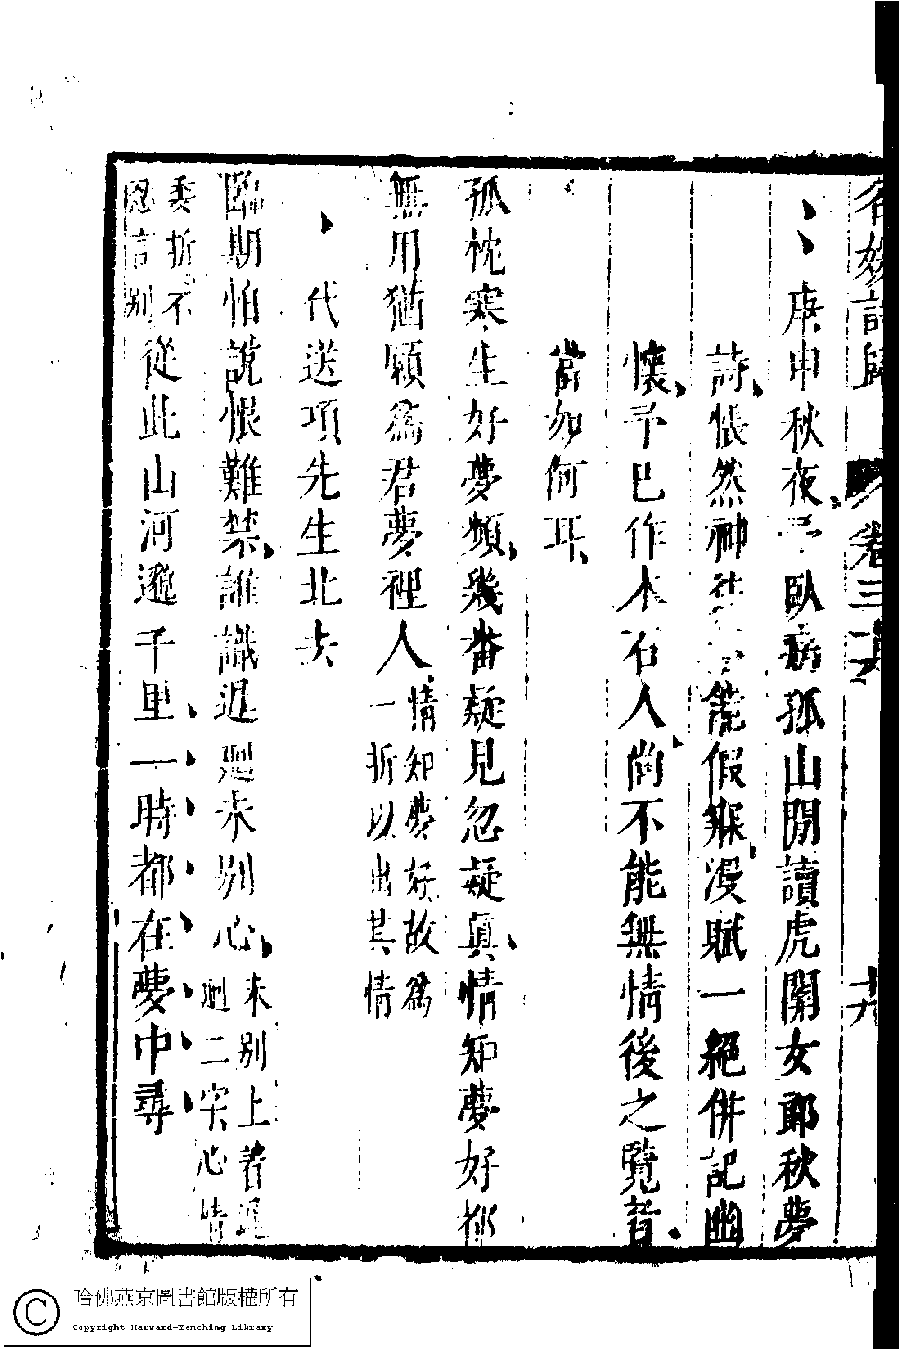 名媛詩歸 卷三十六 十九
庚申秋夜予臥病孤山閒讀虎關女郎秋夢
詩悵然神往不能假寐漫賦一絕併記幽
懷予已作木石人尚不能無情後之覽者
當如何耳
孤枕寒生好夢頻幾番疑見忽疑眞情知夢好都
無用猶願爲君夢裡人情知夢好故爲
一折以出其情
代送項先生北去
臨期怕說恨難禁誰識遲廻未別心未別上著遲
廻二字心情
委折不
忍言別從此山河遞千里一時都在夢中尋
哈佛燕京圖書館版權所有
Copyright Harvard-Yenching Library